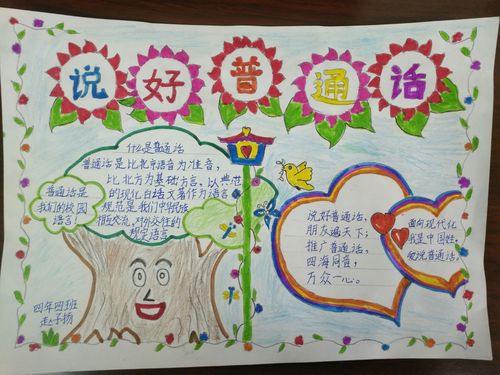 说好普通话
什么是普通话
普通话是比北京语音为准音，
比北方为基础方言，以典范
的现化白话文著作为语言
规范是我们中华民族
相互交流，对外交往的
规定语言
普通话是
我们的校园
语言
四年四班
赵子扬
说好普通话，
朋友遍天下；
推广普通话，
四海同音，
万众一心。
面向现代化
我是中国娃，
爱说普通话，